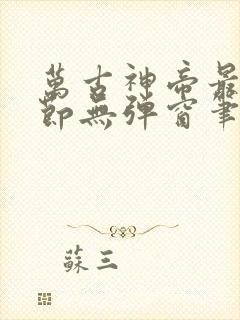 萬古神帝最
節無彈窗筆
蘇三